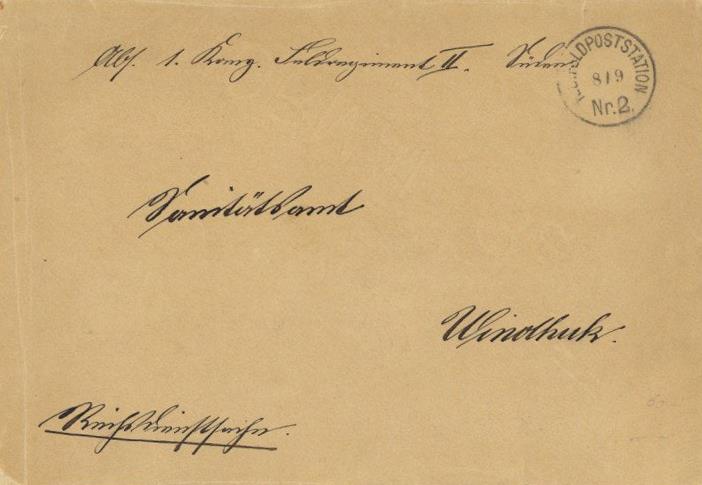 Abs. 1. Komp. Feldregiment II. Süden
K.D. FELDPOSTSTATION
8/9
Nr. 2.
Sanitätsamt
Windhuk.
Reichsdienstsache.